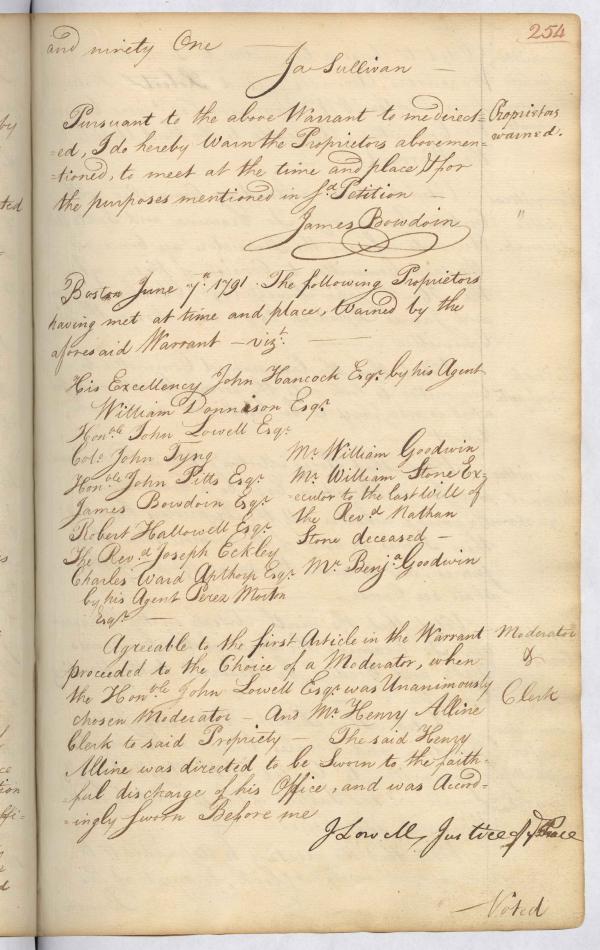 254
and ninety One
Ja Sullivan
Pursuant to the above Warrant to me direct=
=ed, I do hereby Warn the Proprietors abovemen=
=tioned, to meet at the time and place, & for
the purposes mentioned in sd. Petition
James Bowdoin
Proprietors
warned.
"
Boston June 7th. 1791. The following Proprietors
having met at time and place, Warned by the
aforesaid Warrant — vizt.
His Excellency John Hancock Esqr. by his Agent
William Donnison Esqr.
Honble. John Lowell Esqr.
Colo. John Tyng
Honble. John Pitts Esqr.
James Bowdoin Esqr.
Robert Hallowell Esqr.
The Revd. Joseph Eckley
Charles Ward Apthorp Esqr.
by his Agent Perez Morton
Esqr. —
Mr. William Goodwin
Mr. William Stone Ex=
=ecutor to the last Will of
the Revd. Nathan
Stone deceased —
Mr. Benja. Goodwin
Agreeable to the first Article in the Warrant
proceeded to the Choice of a Moderator, when
the Honble. John Lowell Esqr. was Unanimously
chosen Moderator — And Mr. Henry Alline
Clerk to said Propriety — The said Henry
Alline was directed to be Sworn to the faith=
=ful discharge of his Office, and was Accord=
=ingly Sworn Before me
Moderator
&
Clerk
J Lowell, Justice of ye Peace
Voted